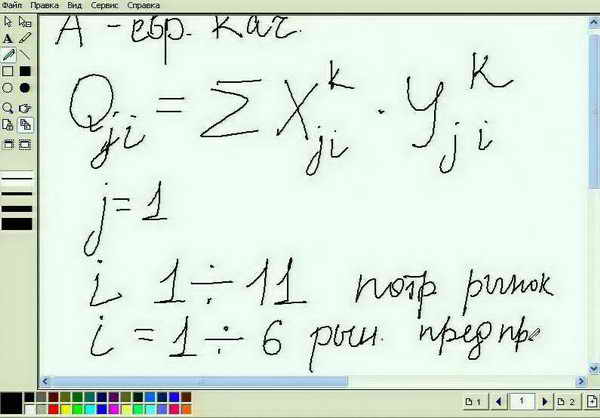 Файл Правка Вид Сервис Справка
A - евр. кач.
Q_{ji} = Σ X_{ji}^{k} · y_{ji}^{k}
j = 1
i 1 ÷ 11 потр рынок
i = 1 ÷ 6 рын. предпр
1 1 2